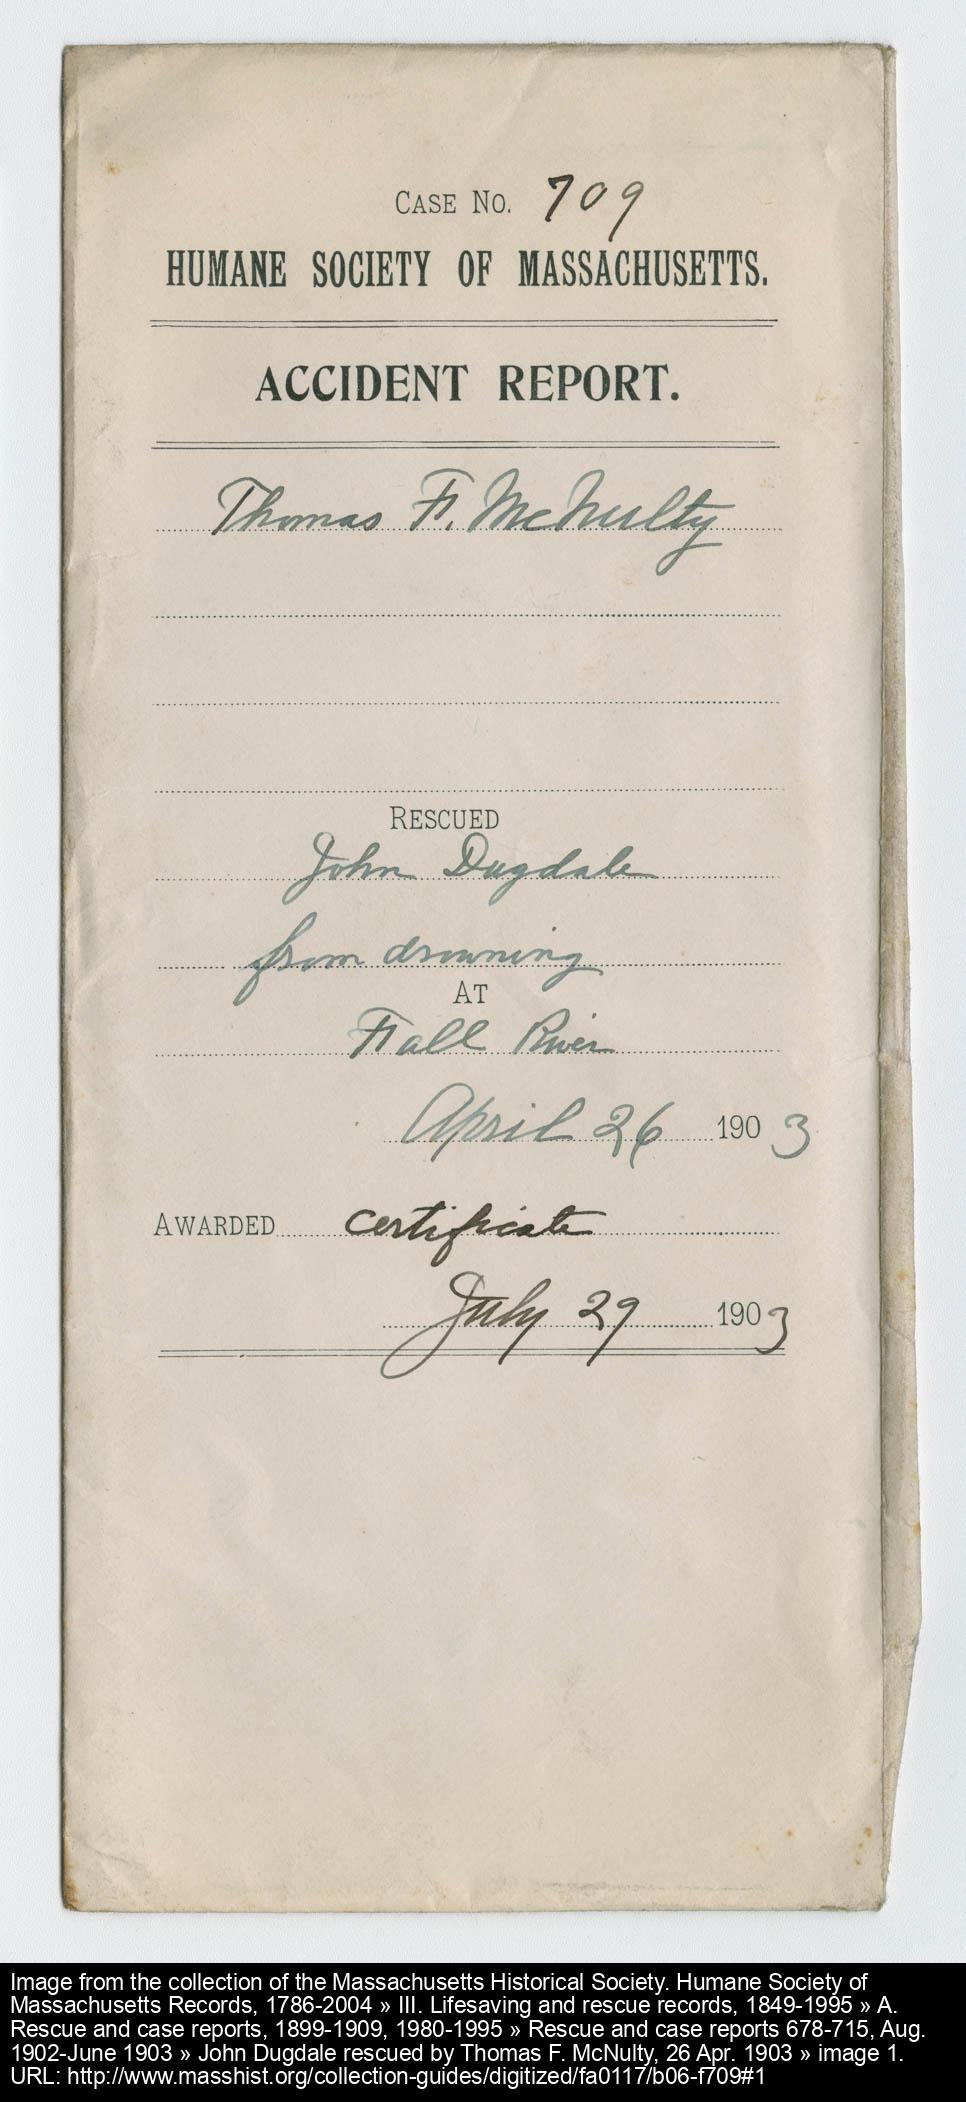 CASE NO. 709
HUMANE SOCIETY OF MASSACHUSETTS.
ACCIDENT REPORT.
Thomas F. McNulty
RESCUED
John Dugdale
from drowning
AT
Fall River
April 26 1903
AWARDED certificate
July 29 1903
Image from the collection of the Massachusetts Historical Society. Humane Society of
Massachusetts Records, 1786-2004 » III. Lifesaving and rescue records, 1849-1995 » A.
Rescue and case reports, 1899-1909, 1980-1995 » Rescue and case reports 678-715, Aug.
1902-June 1903 » John Dugdale rescued by Thomas F. McNulty, 26 Apr. 1903 » image 1.
URL: http://www.masshist.org/collection-guides/digitized/fa0117/b06-f709#1